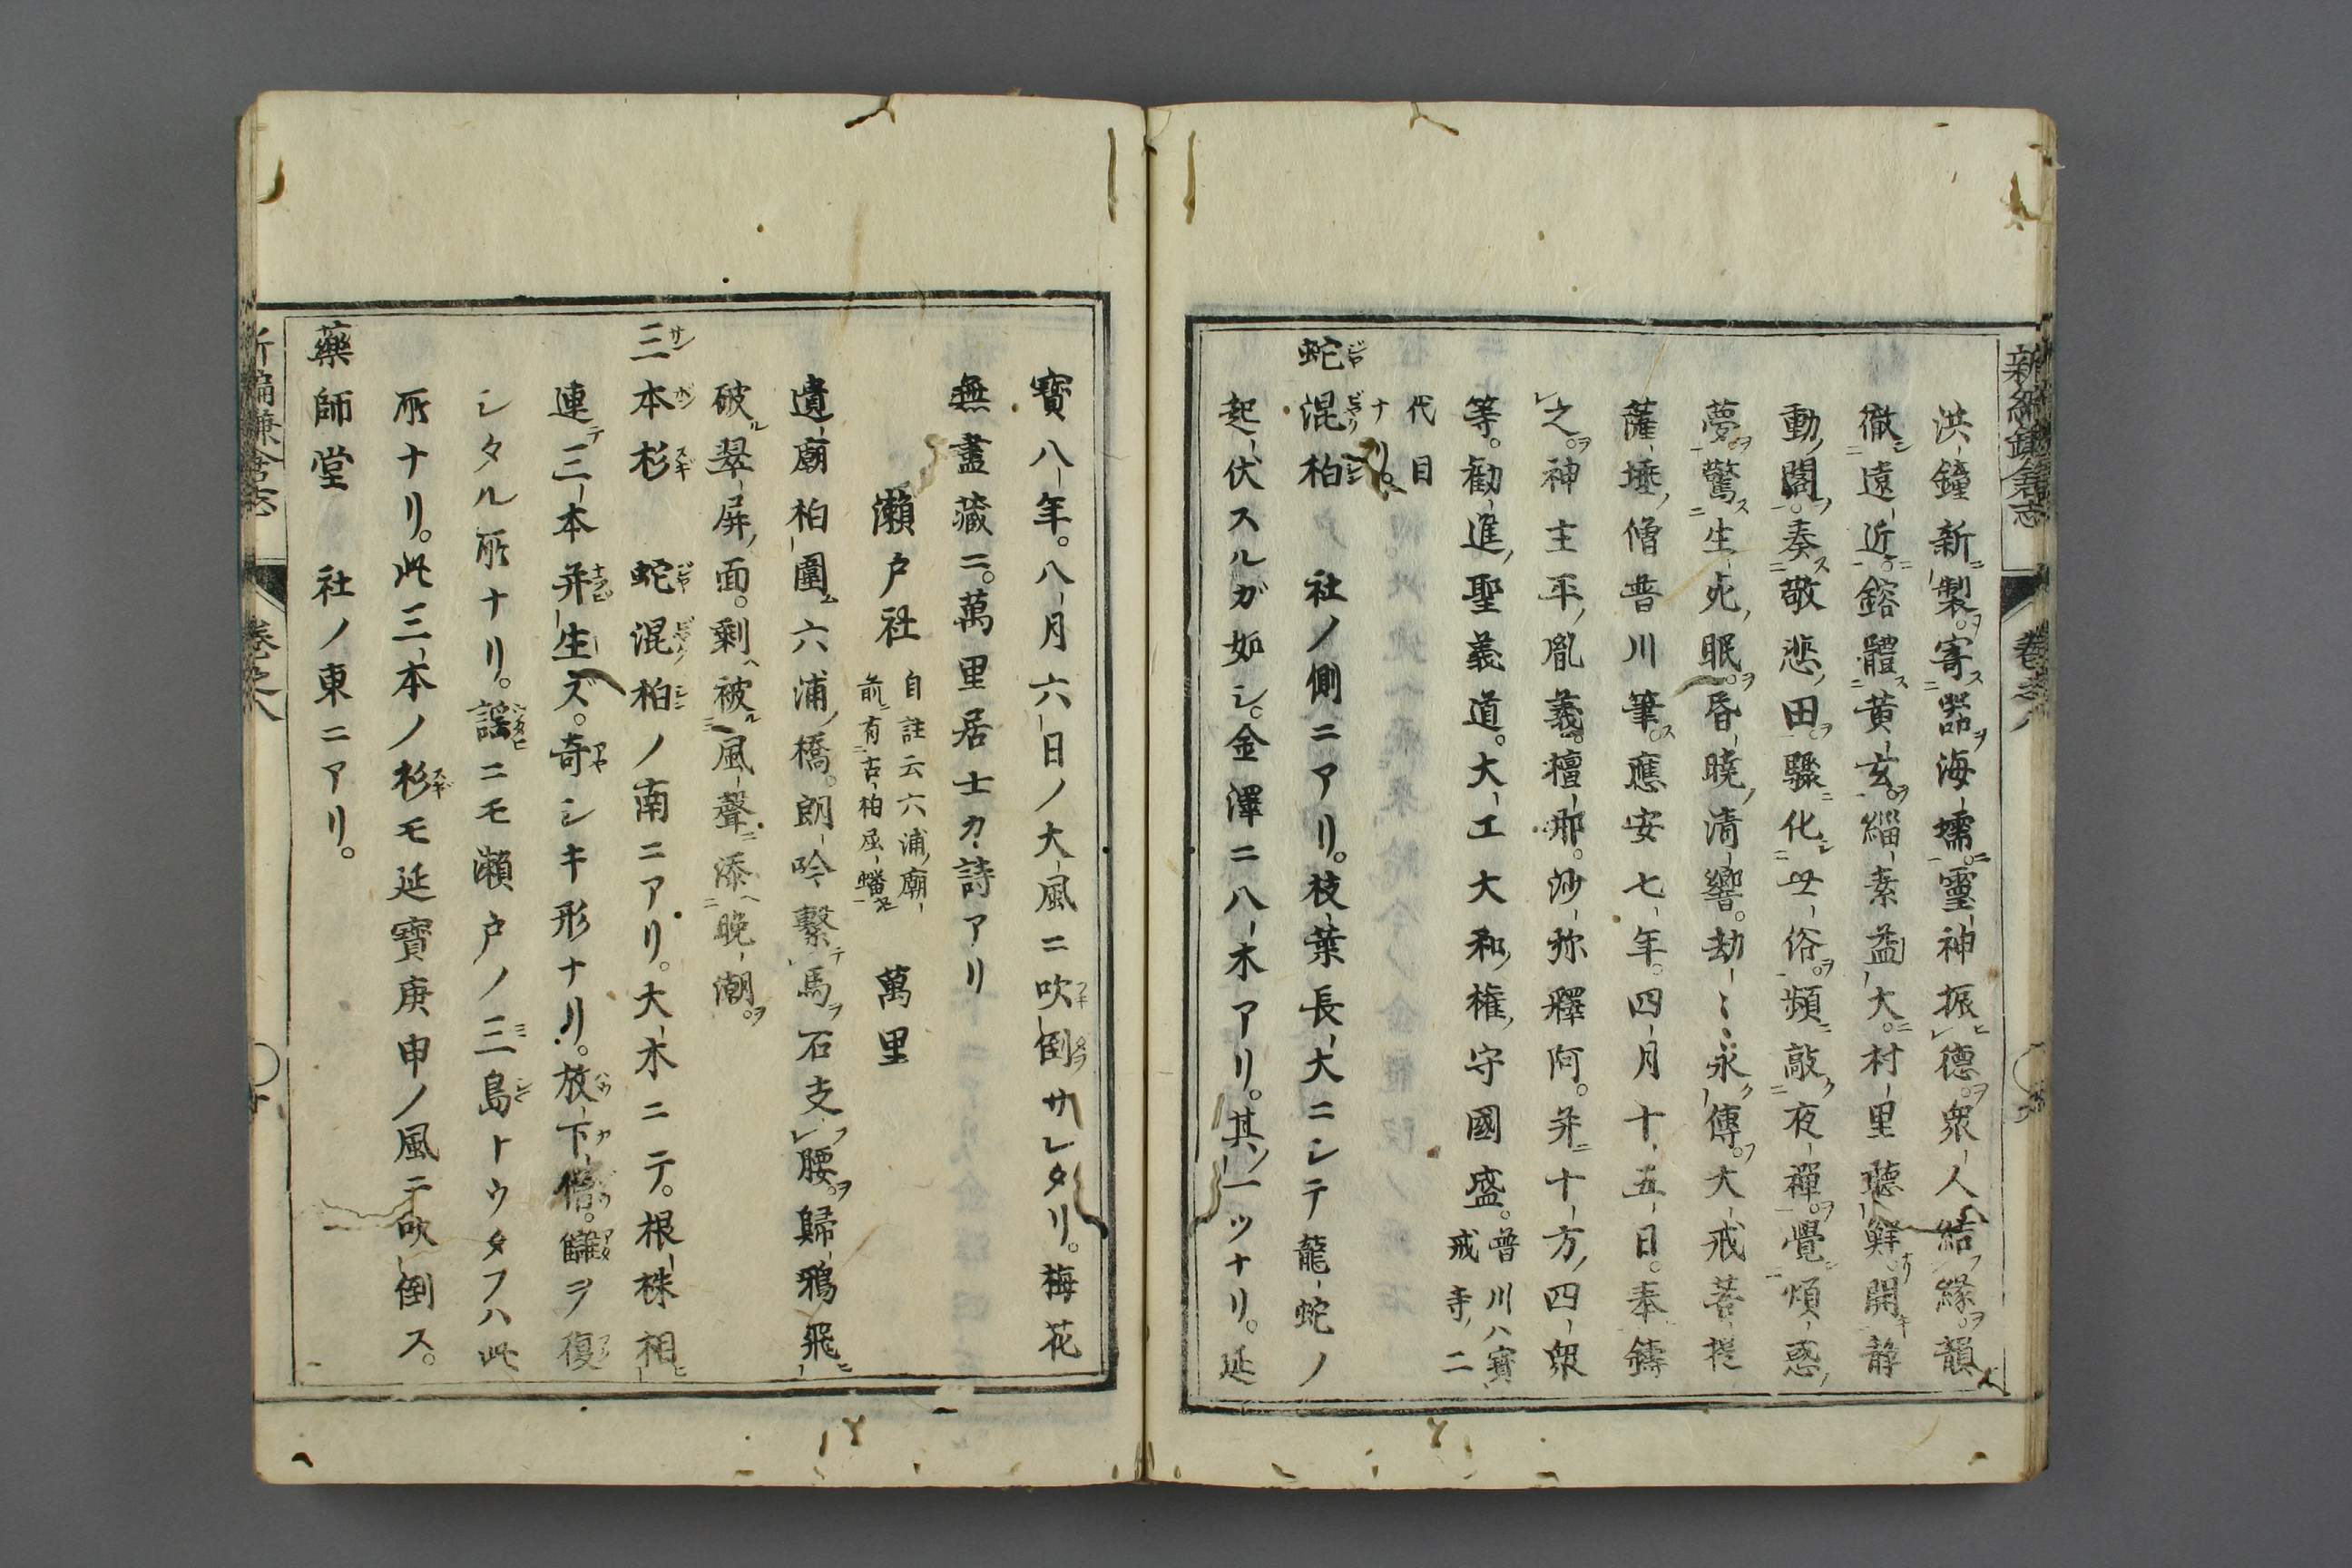 新編鎌倉志 卷之八
洪鐘新製。寄器海壖。靈神振德。衆人結緣。韻
徹遠近。鎔體黃玄。緇素益大。村里聽鮮。開靜
動閣。奏敬悲田。驟化世俗。頻敲夜禪。覺煩惑
夢。驚生死眠。昏曉清響。劫〻永傳。大戒菩提
薩埵僧普川筆。應安七年。四月十五日。奉鑄
之。神主平胤義。檀那。沙弥釋阿。并十方四衆
等。勸進聖義道。大工大和權守國盛。普川ハ寳戒寺二
代目ナリ。
蛇混柏 社ノ側ニアリ。枝葉長大ニシテ龍蛇ノ
起伏スルガ如シ。金澤ニ八木アリ。其一ツナリ。延
寳八年。八月六日ノ大風ニ吹倒サレタリ。梅花
無盡藏ニ。萬里居士カ詩アリ
瀬戸社 自註云六浦廟前有古柏屈蟠 萬里
遺廟柏圍六浦橋。朗吟繫馬石支腰。歸鴉飛
破翠屏面。剩被風聲添晩潮。
三本杉 蛇混柏ノ南ニアリ。大木ニテ。根株相
連テ三本并生ズ。奇シキ形ナリ。放下僧。讎ヲ復
シタル所ナリ。謡ニモ瀬戸ノ三島トウタフハ此
所ナリ。此三本ノ杉モ延寳庚申ノ風ニ吹倒ス。
藥師堂 社ノ東ニアリ。
新編鎌倉志 卷之八